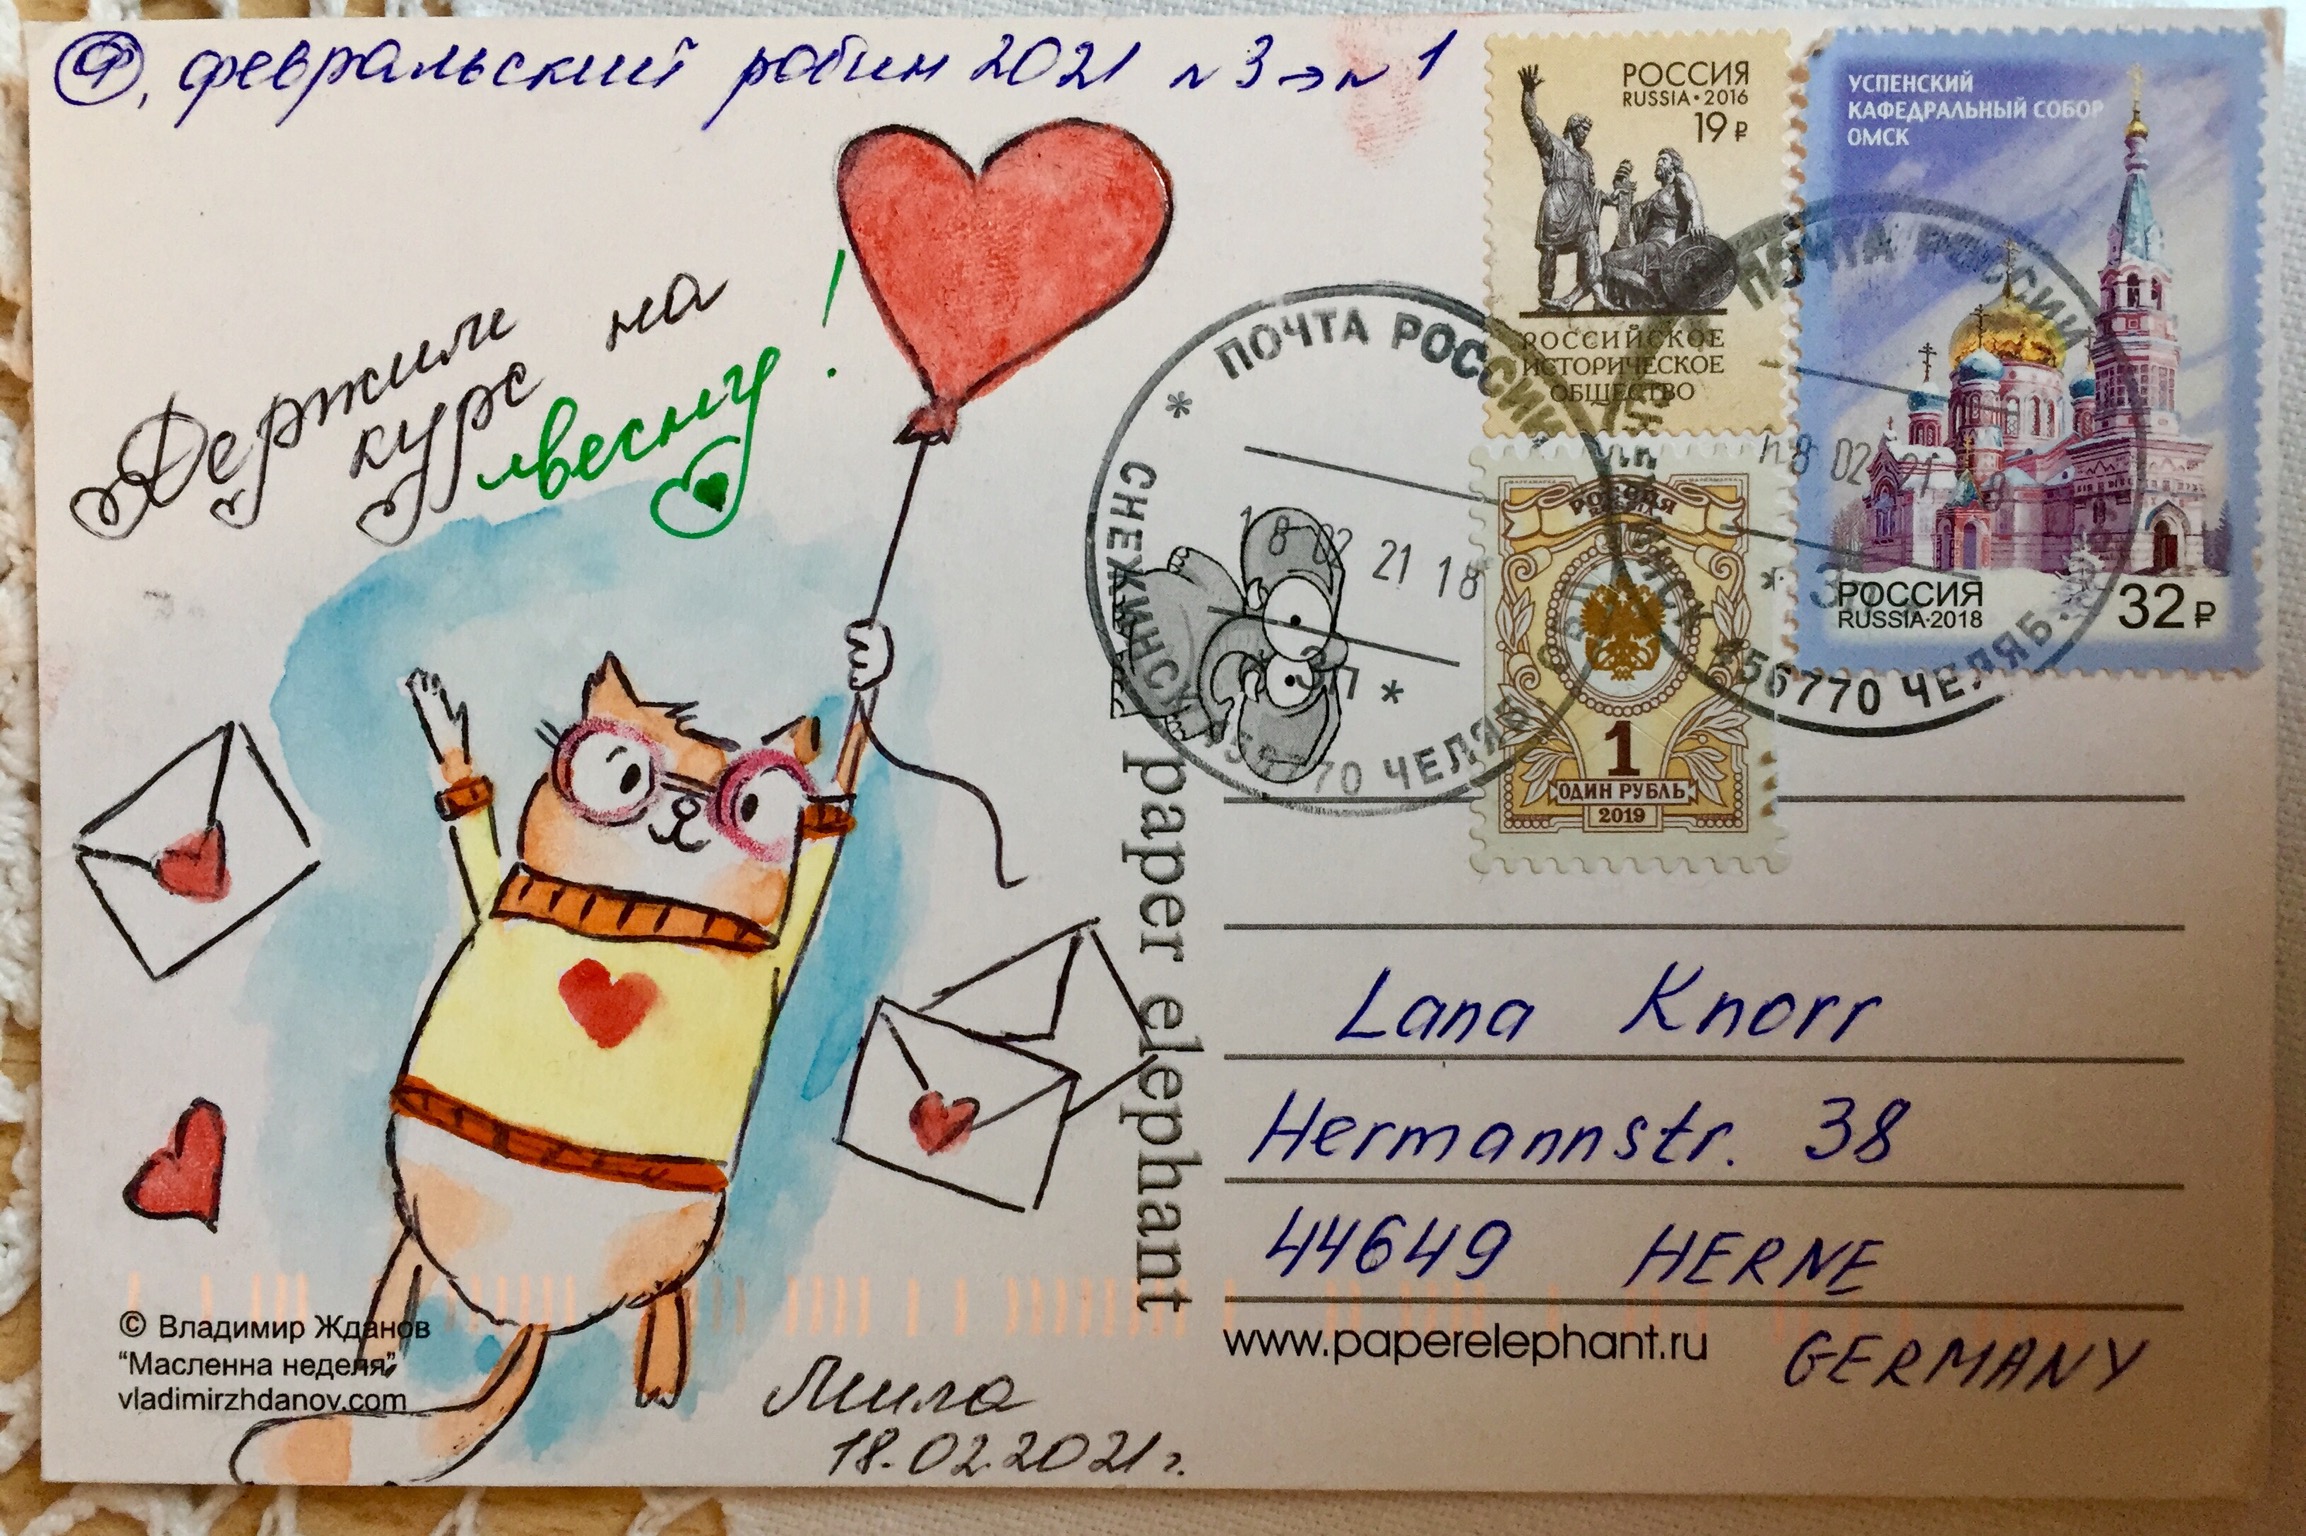 Ф, февральский робин 2021 №3→№1
Держим
курс на
весну!
© Владимир Жданов
“Масленна неделя”
vladimirzhdanov.com
Мила
18.02.2021г.
paper elephant
РОССИЯ
RUSSIA·2016
19 ₽
РОССИЙСКОЕ
ИСТОРИЧЕСКОЕ
ОБЩЕСТВО
УСПЕНСКИЙ
КАФЕДРАЛЬНЫЙ СОБОР
ОМСК
РОССИЯ
RUSSIA·2018
32 ₽
РОССИЯ
RUSSIA
1
ОДИН РУБЛЬ
2019
* ПОЧТА РОССИИ
СНЕЖИНСК 456770 ЧЕЛЯБ.
18 02 21 18
ПОЧТА РОССИИ
456770 ЧЕЛЯБ.
18 02 21 18
Lana Knorr
Hermannstr. 38
44649 HERNE
www.paperelephant.ru
GERMANY